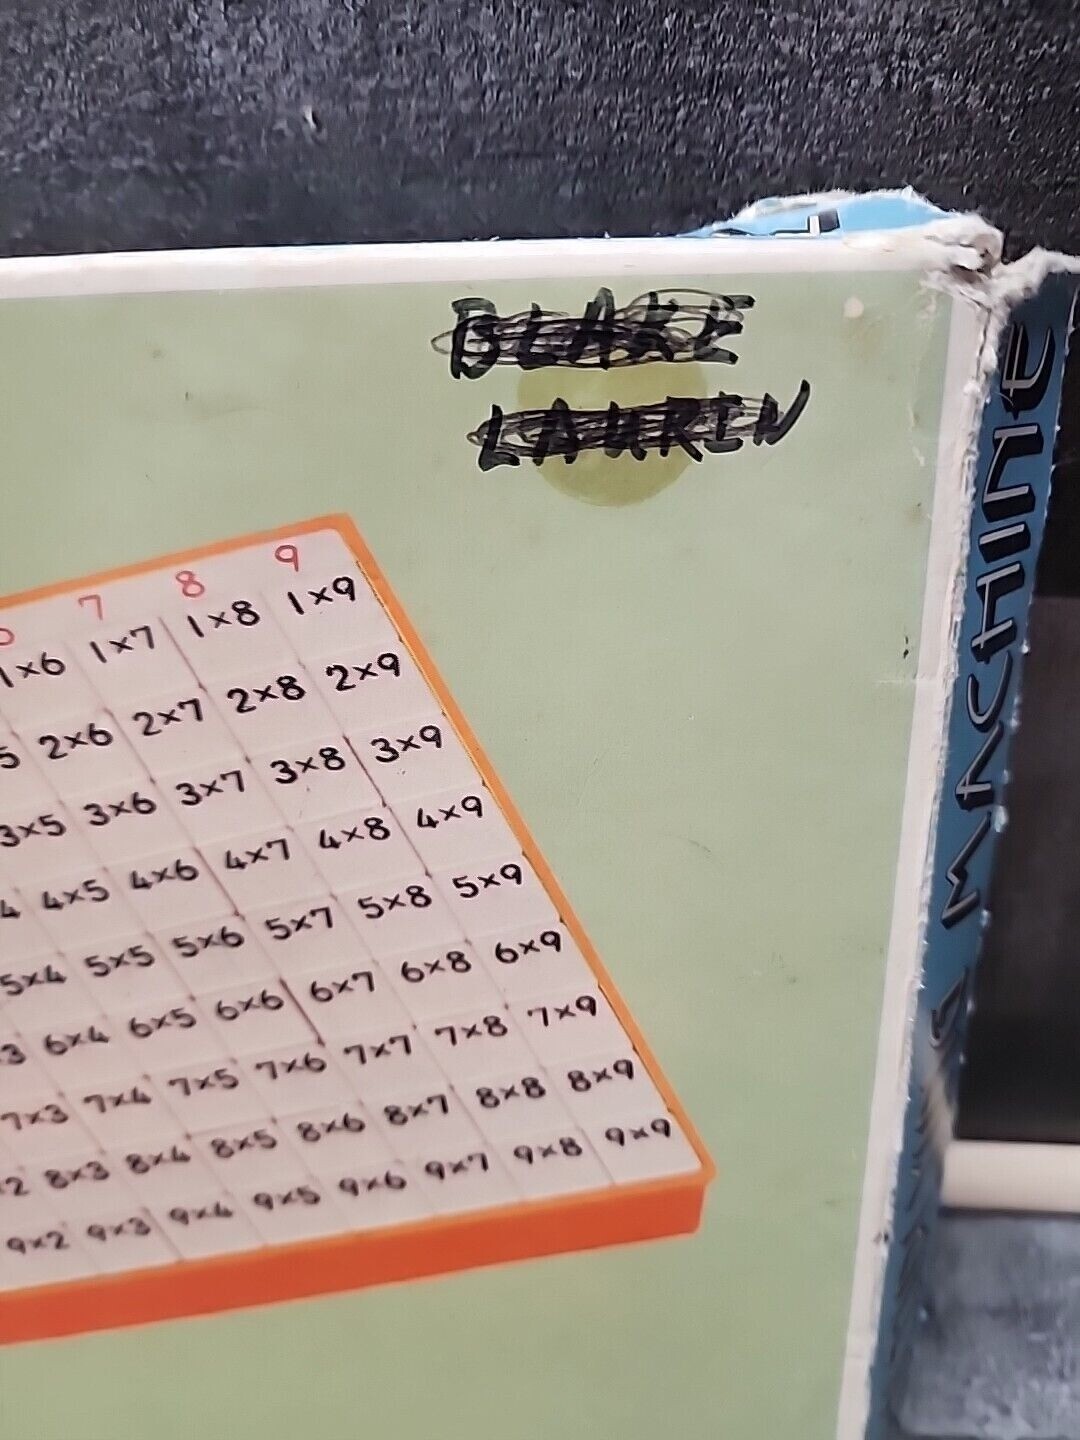 BLAKE
LAURIN
7 8 9
1×6 1×7 1×8 1×9
5 2×6 2×7 2×8 2×9
3×5 3×6 3×7 3×8 3×9
4 4×5 4×6 4×7 4×8 4×9
5×4 5×5 5×6 5×7 5×8 5×9
3 6×4 6×5 6×6 6×7 6×8 6×9
7×3 7×4 7×5 7×6 7×7 7×8 7×9
2 8×3 8×4 8×5 8×6 8×7 8×8 8×9
9×2 9×3 9×4 9×5 9×6 9×7 9×8 9×9
MACHINE